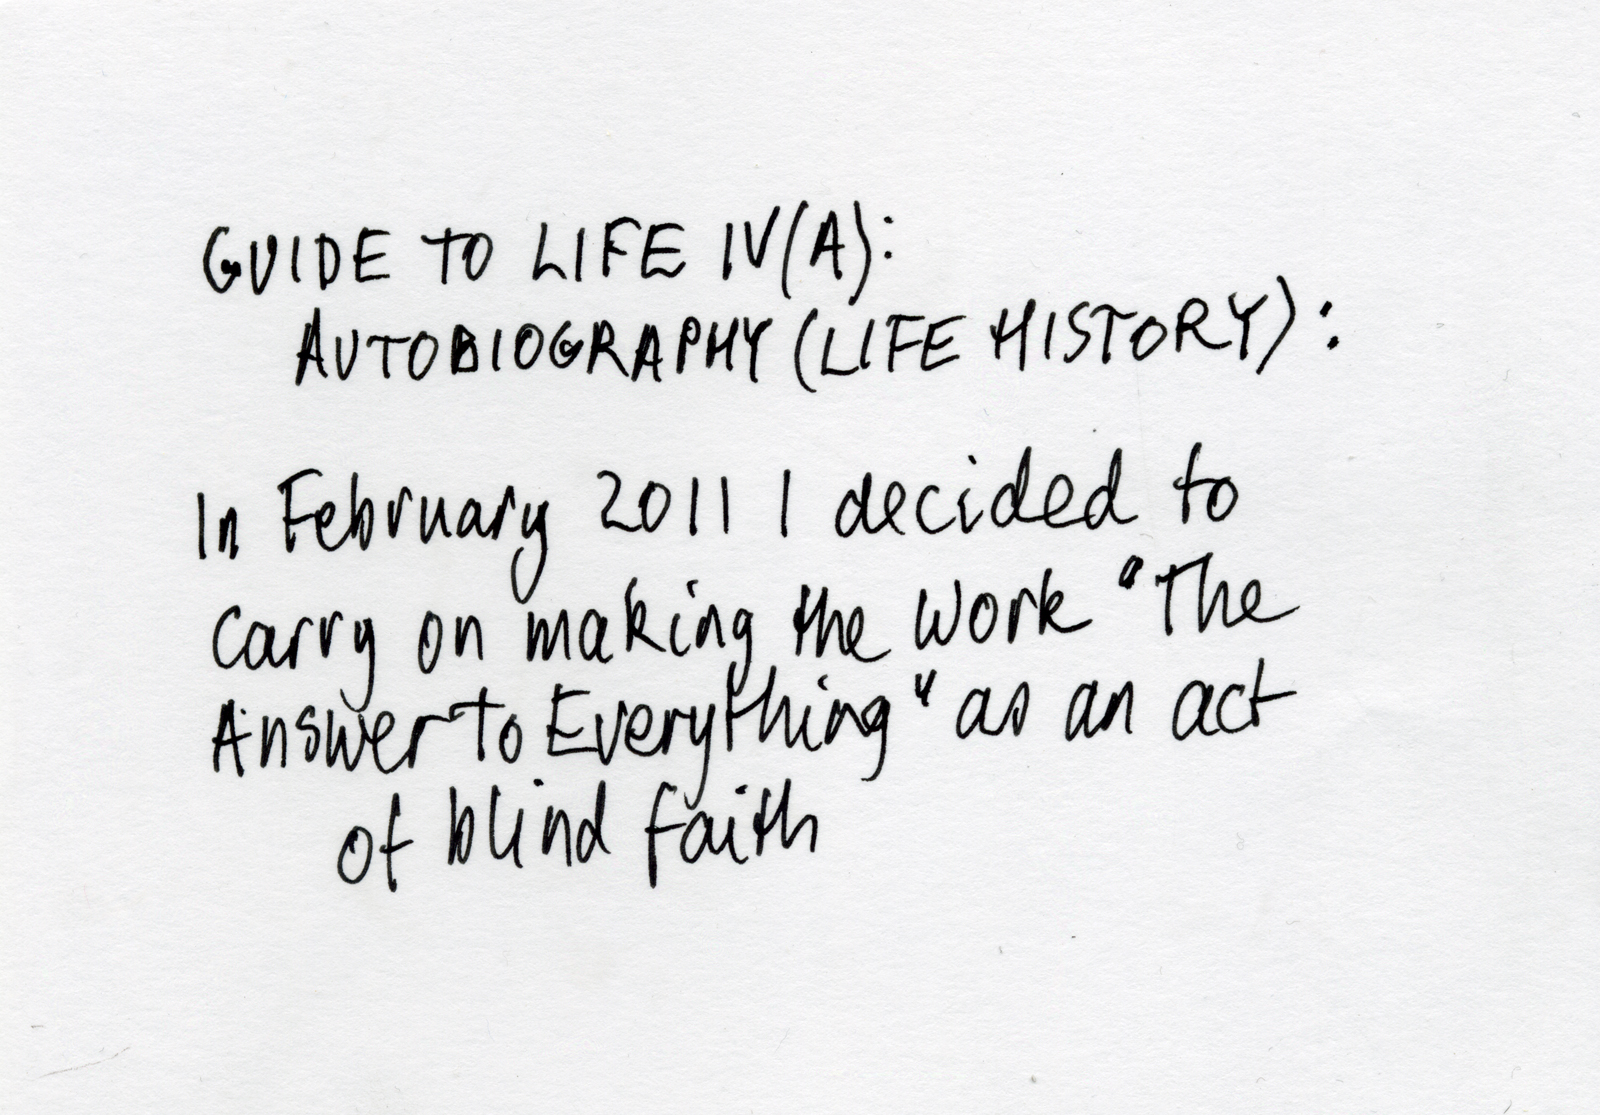 GUIDE TO LIFE IV(A):
AUTOBIOGRAPHY (LIFE HISTORY):
In February 2011 I decided to
carry on making the work "The
Answer to Everything" as an act
of blind faith